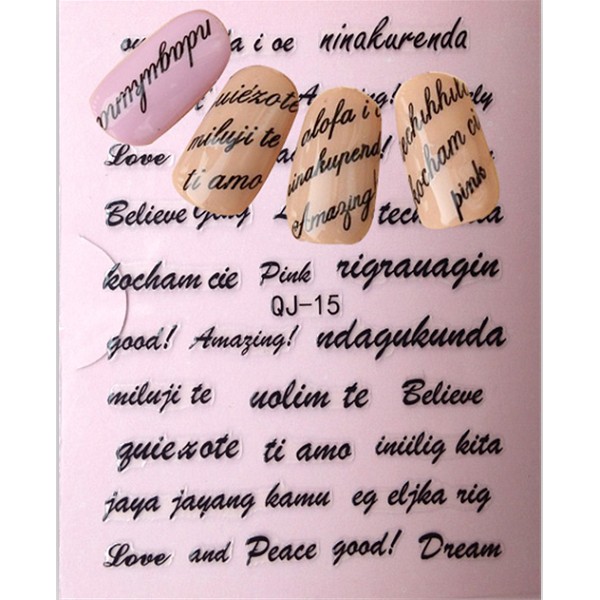 a i oe ninakurenda
ndagukunda
quiezote
miluji te
ti amo
alofa i
ninakupenda
Amazing!
kocham ci
pink
Love
Believe
kocham cie Pink rigrauagin
QJ-15
good! Amazing! ndagukunda
miluji te uolim te Believe
quiexote ti amo iniilig kita
jaya jayang kamu eg eljka rig
Love and Peace good! Dream